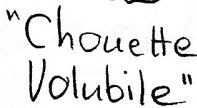 "Chouette
Volubile"